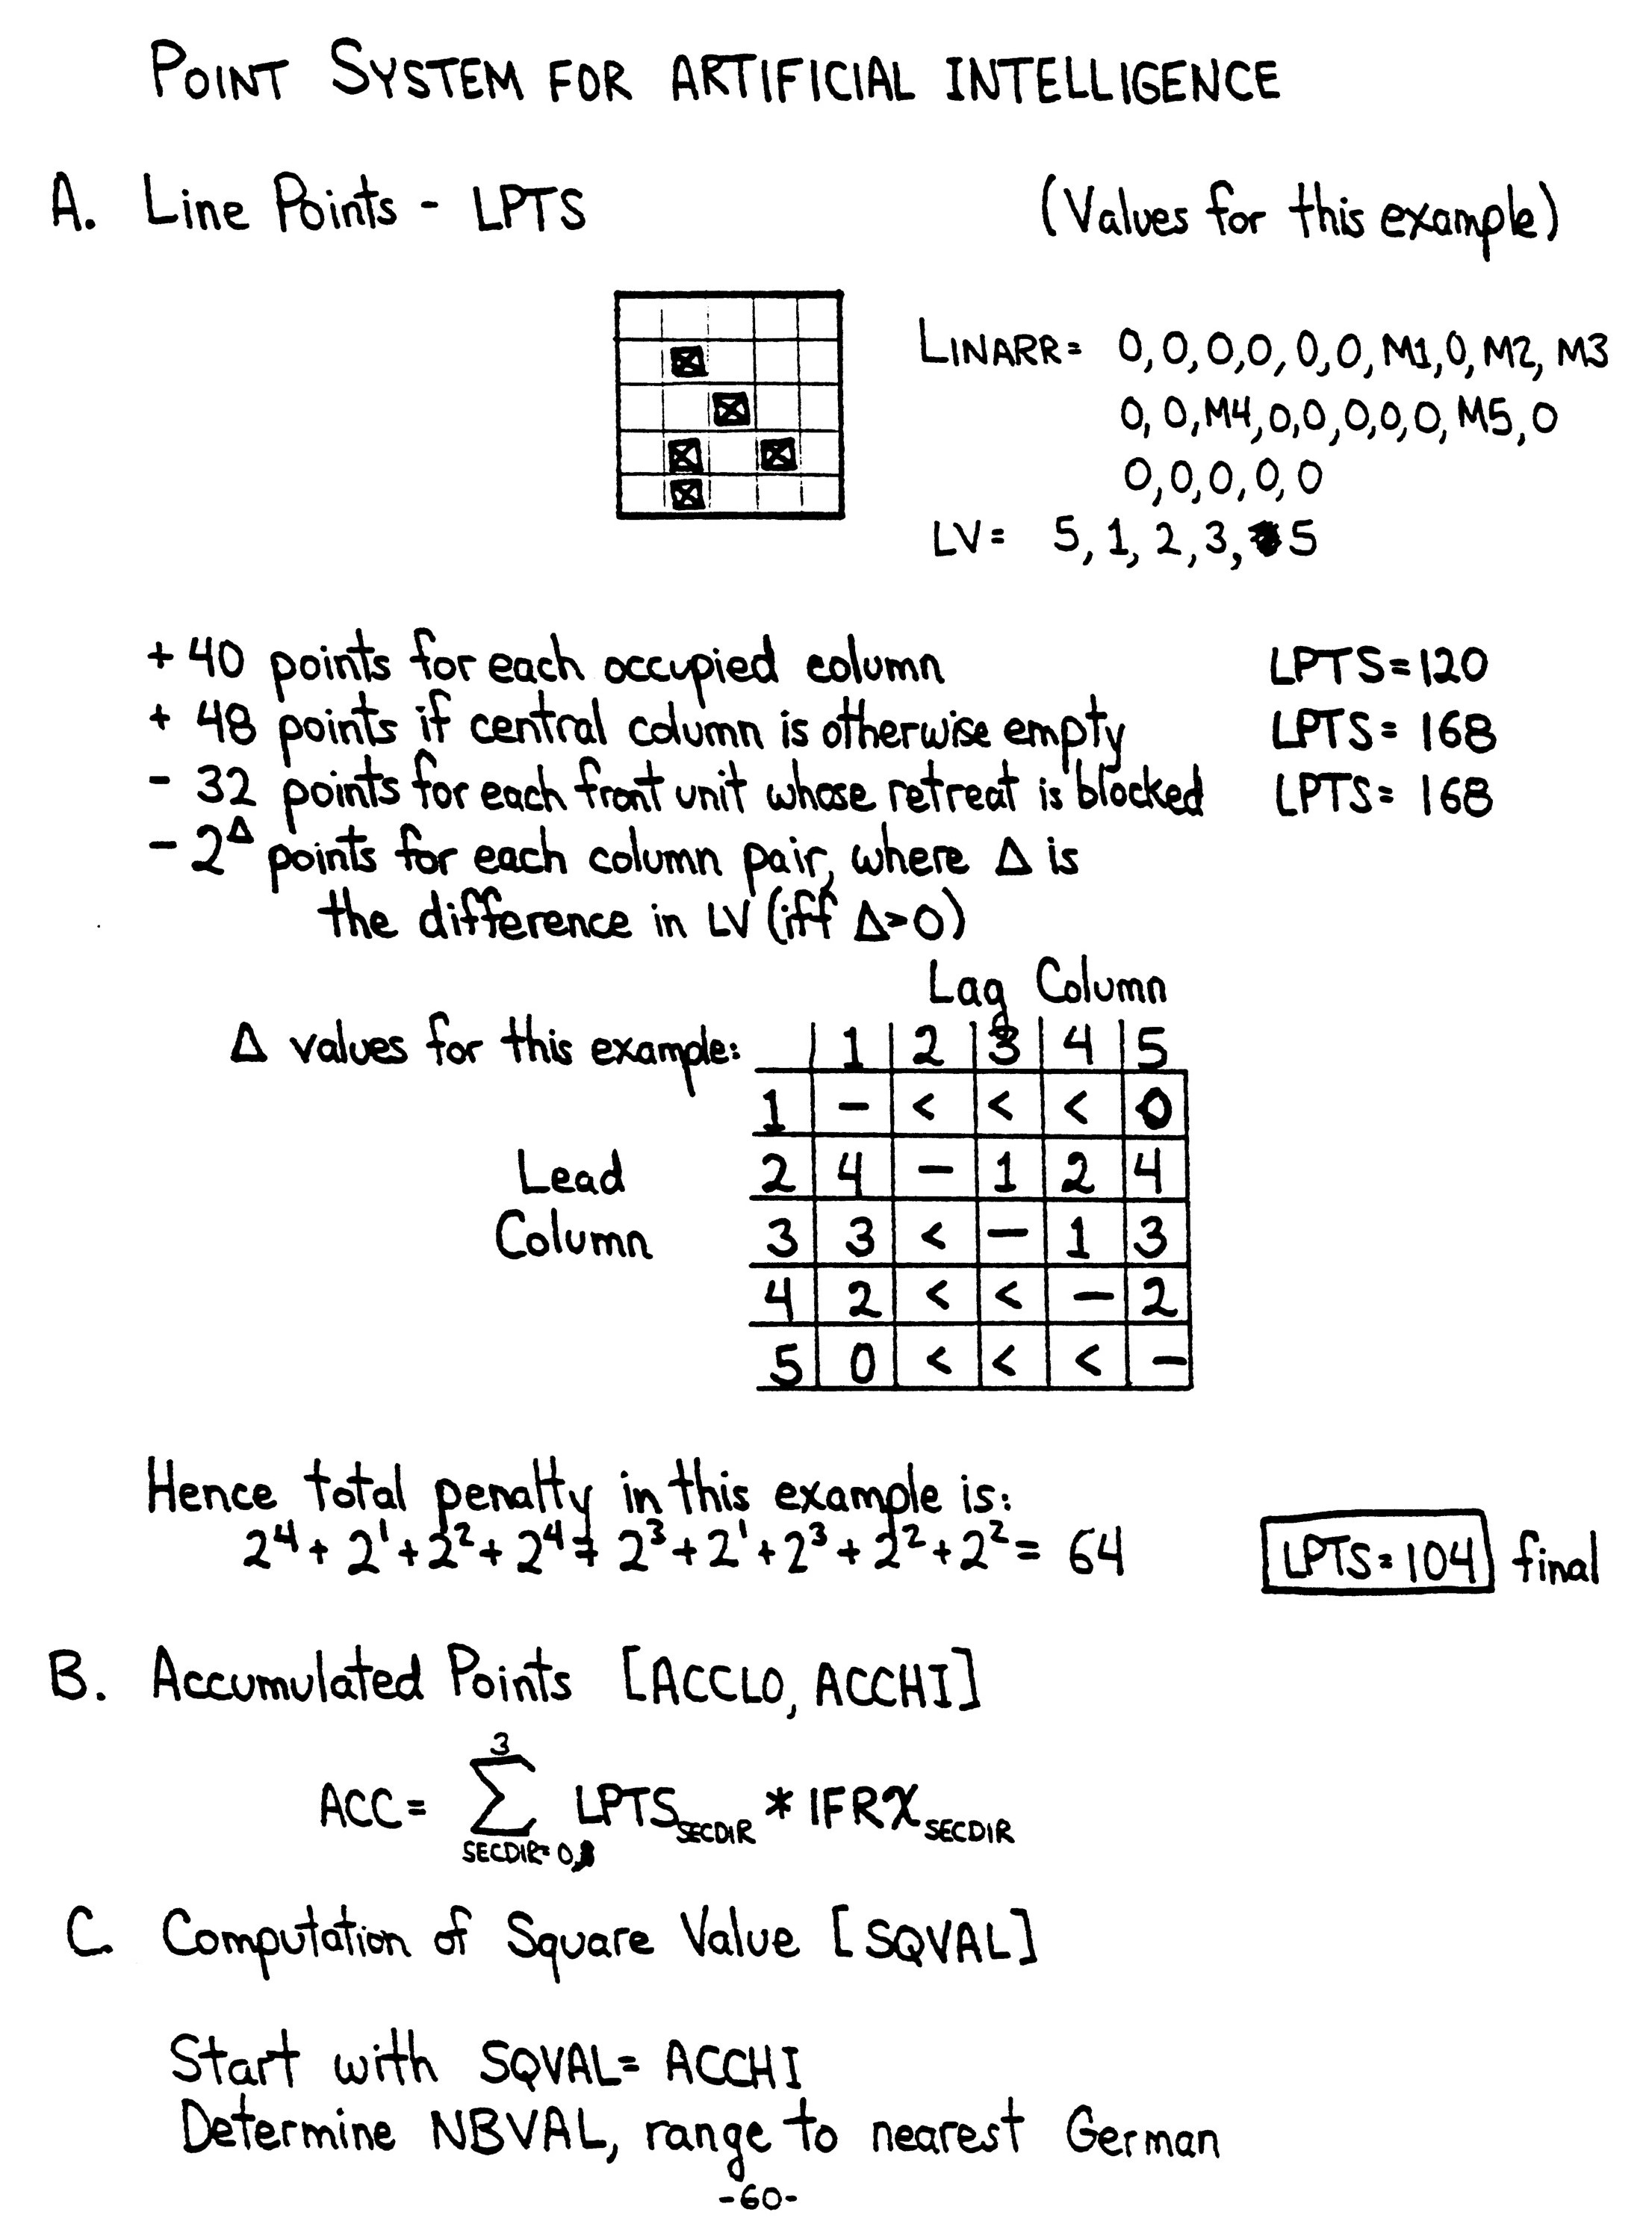 POINT SYSTEM FOR ARTIFICIAL INTELLIGENCE
A. Line Points - LPTS
(Values for this example)
LINARR= 0,0,0,0,0,0,M1,0,M2,M3
0,0,M4,0,0,0,0,0,M5,0
0,0,0,0,0
LV= 5,1,2,3,5
+ 40 points for each occupied column LPTS=120
+ 48 points if central column is otherwise empty LPTS= 168
- 32 points for each front unit whose retreat is blocked LPTS= 168
- 2^Δ points for each column pair, where Δ is
the difference in LV (iff Δ>0)
Lag Column
Δ values for this example: 1 2 3 4 5
1 - < < < 0
Lead 2 4 - 1 2 4
Column 3 3 < - 1 3
4 2 < < - 2
5 0 < < < -
Hence total penalty in this example is:
2⁴+2¹+2²+2⁴+2³+2¹+2³+2²+2²= 64 LPTS=104 final
B. Accumulated Points [ACCLO, ACCHI]
3
ACC= Σ LPTS SECDIR * IFRX SECDIR
SECDIR=0,
C. Computation of Square Value [SQVAL]
Start with SQVAL= ACCHI
Determine NBVAL, range to nearest German
-60-